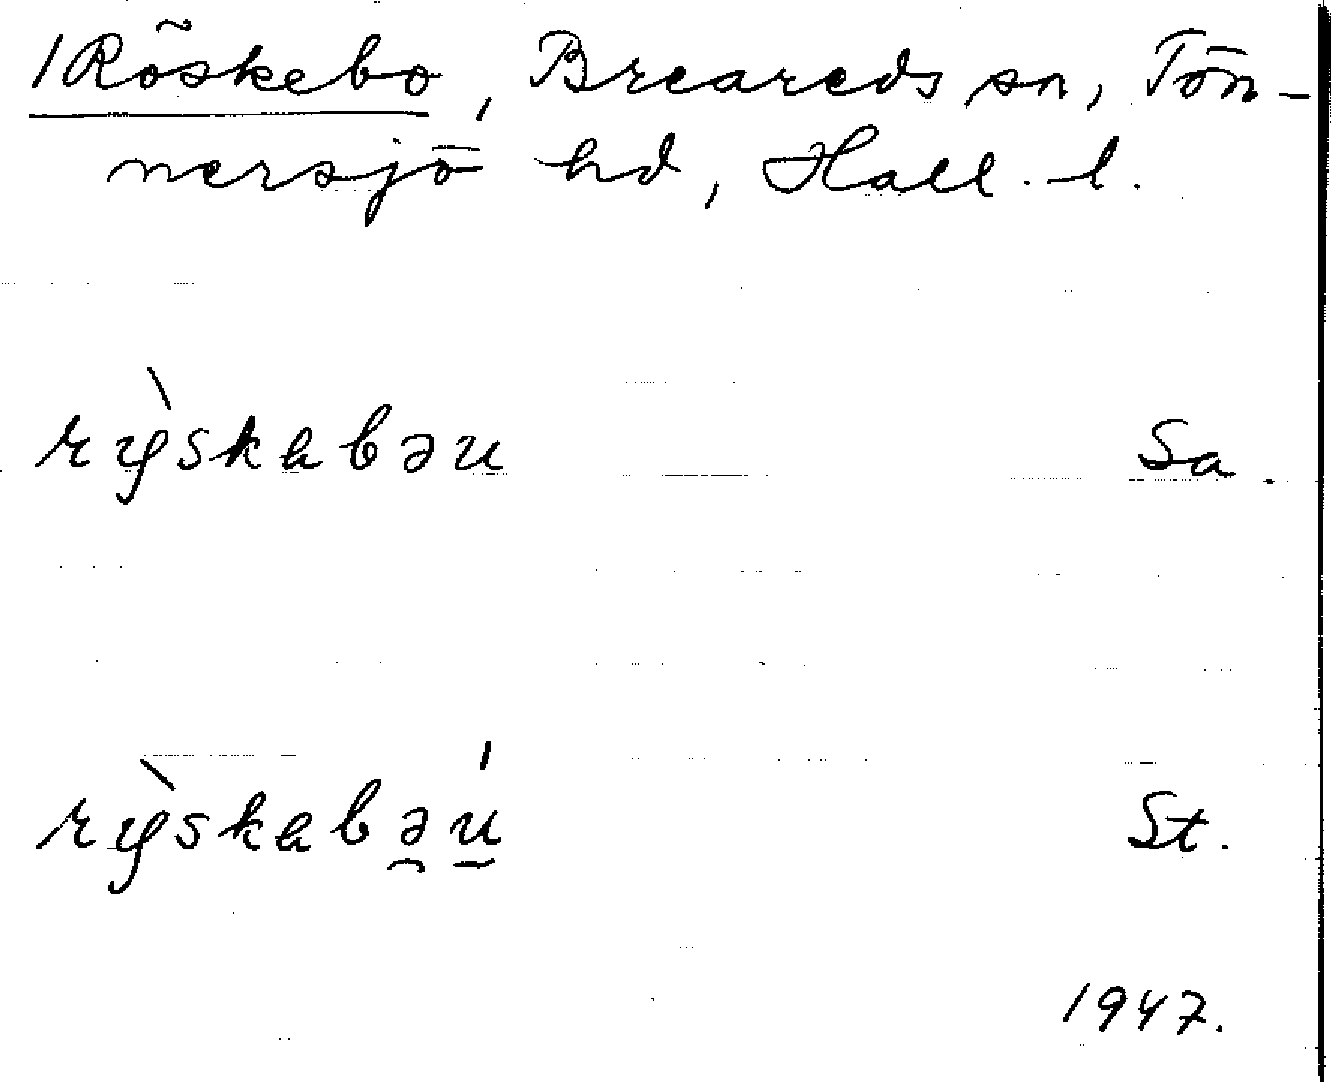 /Röskebo, Breareds sn, Tön-
nersjö hd, Hall. l.
rÿ̀skabəu Sa.
rÿ̀skabəú St.
1947.